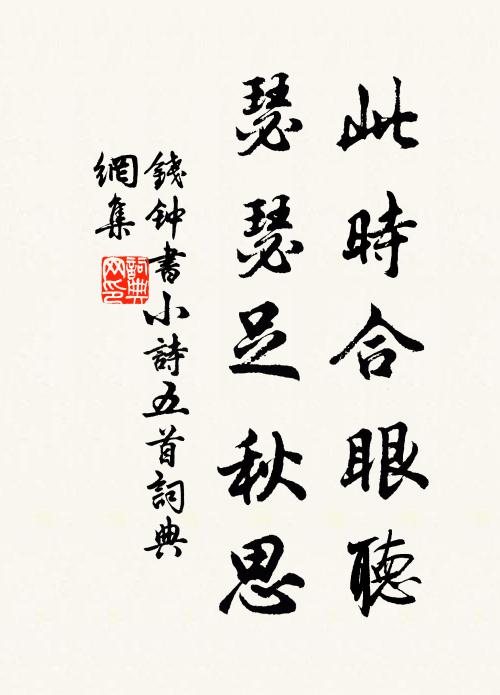 此時合眼聽
瑟瑟足秋思
錢钟書小詩五首詞典
網集
詞典
网印